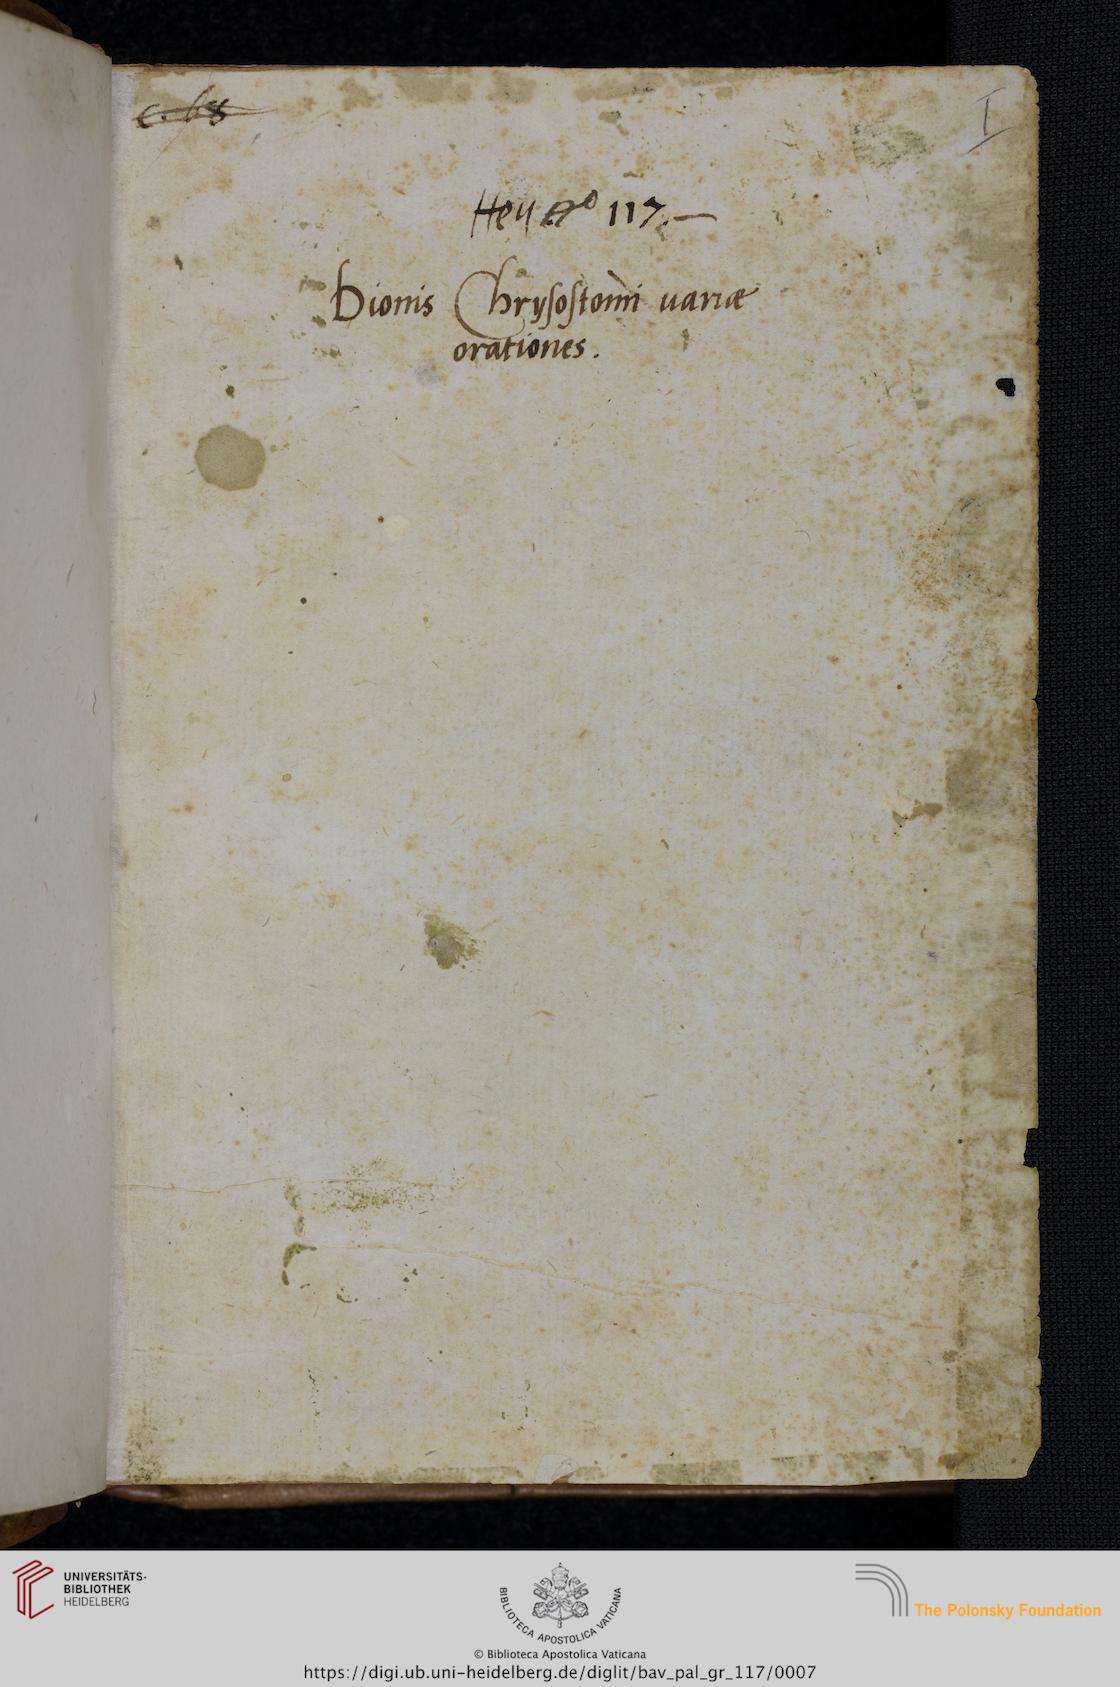 c. 68
I
117.
Dionis Chrysostomi uariæ
orationes.
UNIVERSITÄTS-
BIBLIOTHEK
HEIDELBERG
BIBLIOTECA APOSTOLICA VATICANA
The Polonsky Foundation
© Biblioteca Apostolica Vaticana
https://digi.ub.uni-heidelberg.de/diglit/bav_pal_gr_117/0007